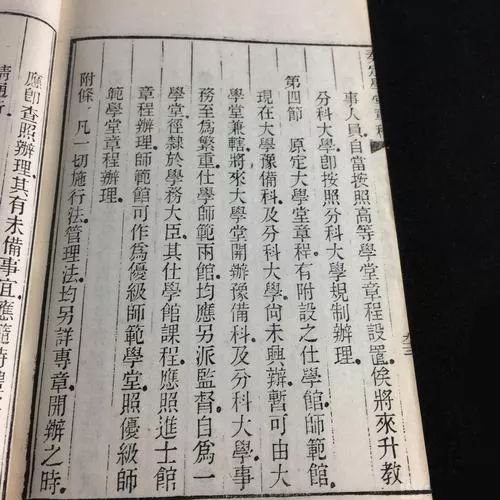 奏定學堂章程
事人員自當按照高等學堂章程設置俟將來升教
分科大學卽按照分科大學規制辦理
第四節　原定大學堂章程有附設之仕學館師範館
現在大學豫備科及分科大學尚未興辦暫可由大
學堂兼轄將來大學堂開辦豫備科及分科大學事
務至爲繁重仕學師範兩館均應另派監督自爲一
學堂徑隸於學務大臣其仕學館課程應照進士館
章程辦理師範館可作爲優級師範學堂照優級師
範學堂章程辦理
附條　凡一切施行法管理法均另詳專章開辦之時
應卽查照辦理其有未備事宜應